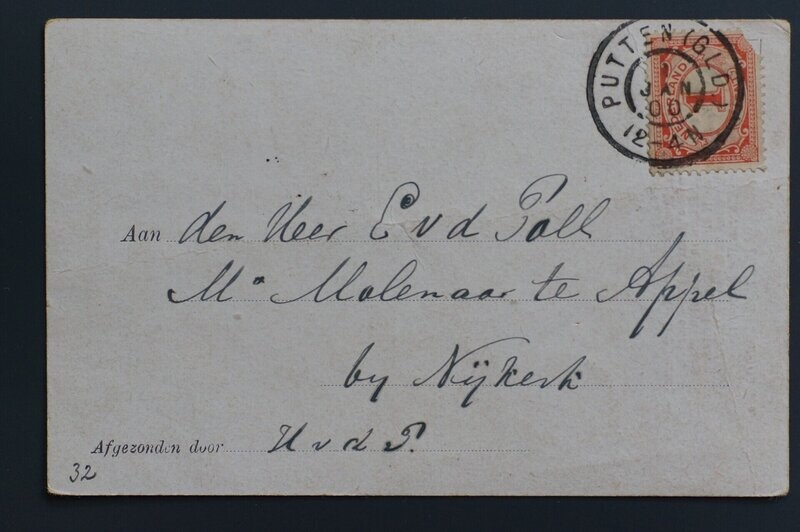 PUTTEN (GLD)
JAN
00
12-4N
1
Aan den Heer E v d Poll
Mo Molenaar te Appel
by Nijkerk
Afgezonden door H v d P.
32